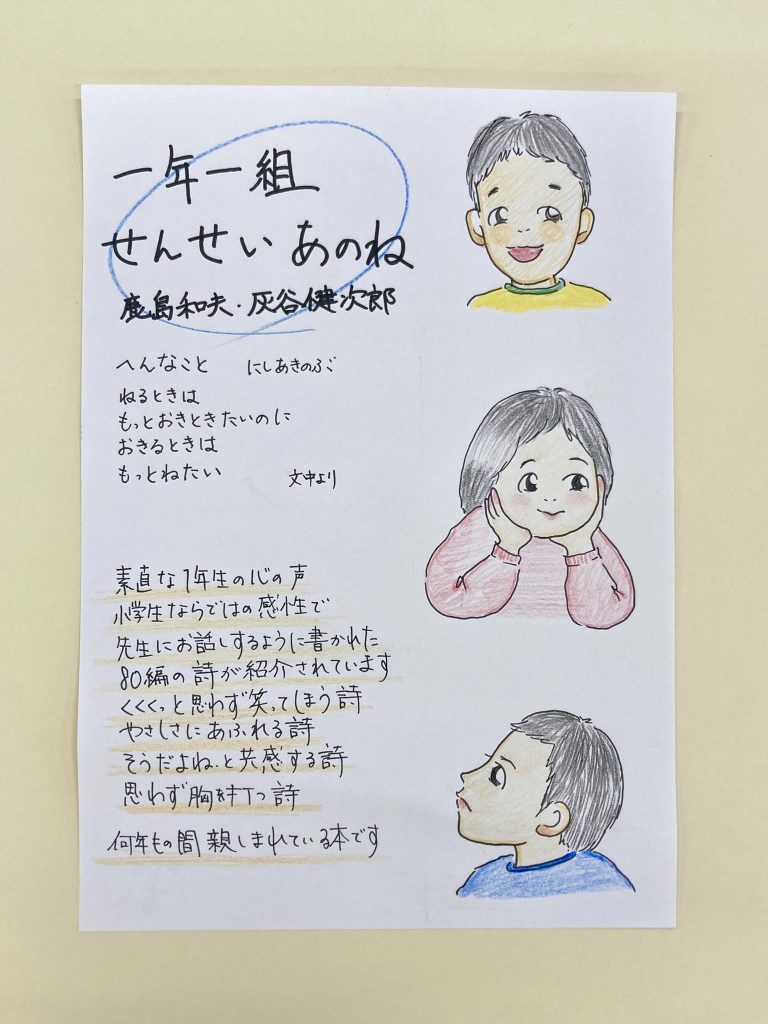 一年一組
せんせい あのね
鹿島和夫・灰谷健次郎
へんなこと にしあきのぶご
ねるときは
もっとおきときたいのに
おきるときは
もっとねたい 文中より
素直な1年生の心の声
小学生ならではの感性で
先生にお話しするように書かれた
80編の詩が紹介されています
くくくっと思わず笑ってしまう詩
やさしさにあふれる詩
そうだよね.と共感する詩
思わず胸を打つ詩
何年もの間親しまれている本です